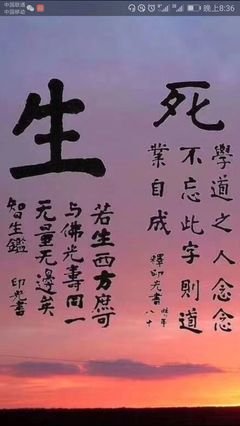 中国联通
中国移动
晚上8:36
死
學道之人念念
不忘此字則道
業自成
釋印光書
時年八十
生
若生西方庶可
与佛光壽同一
无量无邊矣
智生鑑
印光書